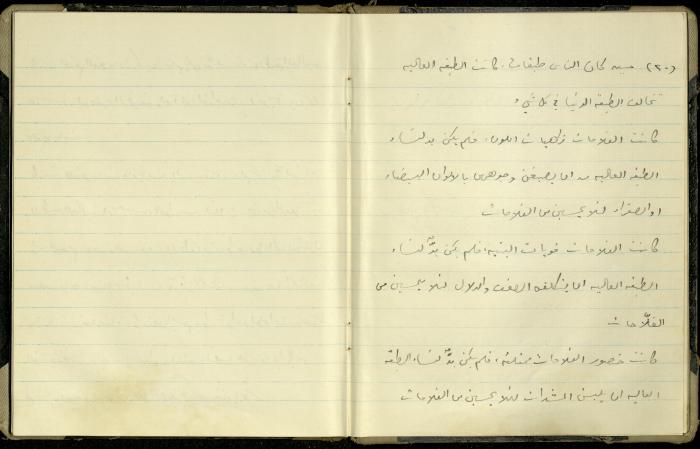 (٢٠) حين كان الناس طبقات، كانت الطبقه العاليه
تخالف الطبقه الدنيا في كل شيء
كانت الفلاحات زاهيات اللون، فلم يكن بد لنساء
الطبقه العاليه من ان يصبغن وجوههن بالالوان البيضاء
او الصفراء لئلا يحسبن من الفلاحات
كانت الفلاحات قويات البنيه، فلم يكن بدٌّ لنساء
الطبقه العاليه ان يتكلفن الضعف والدلال لئلا يحسبن من
الفلّاحات
كانت خصور الفلاحات ممتلئه، فلم يكن بدٌّ لنساء الطبقه
العاليه ان يلبسن المشدات لئلا يحسبن من الفلاحات